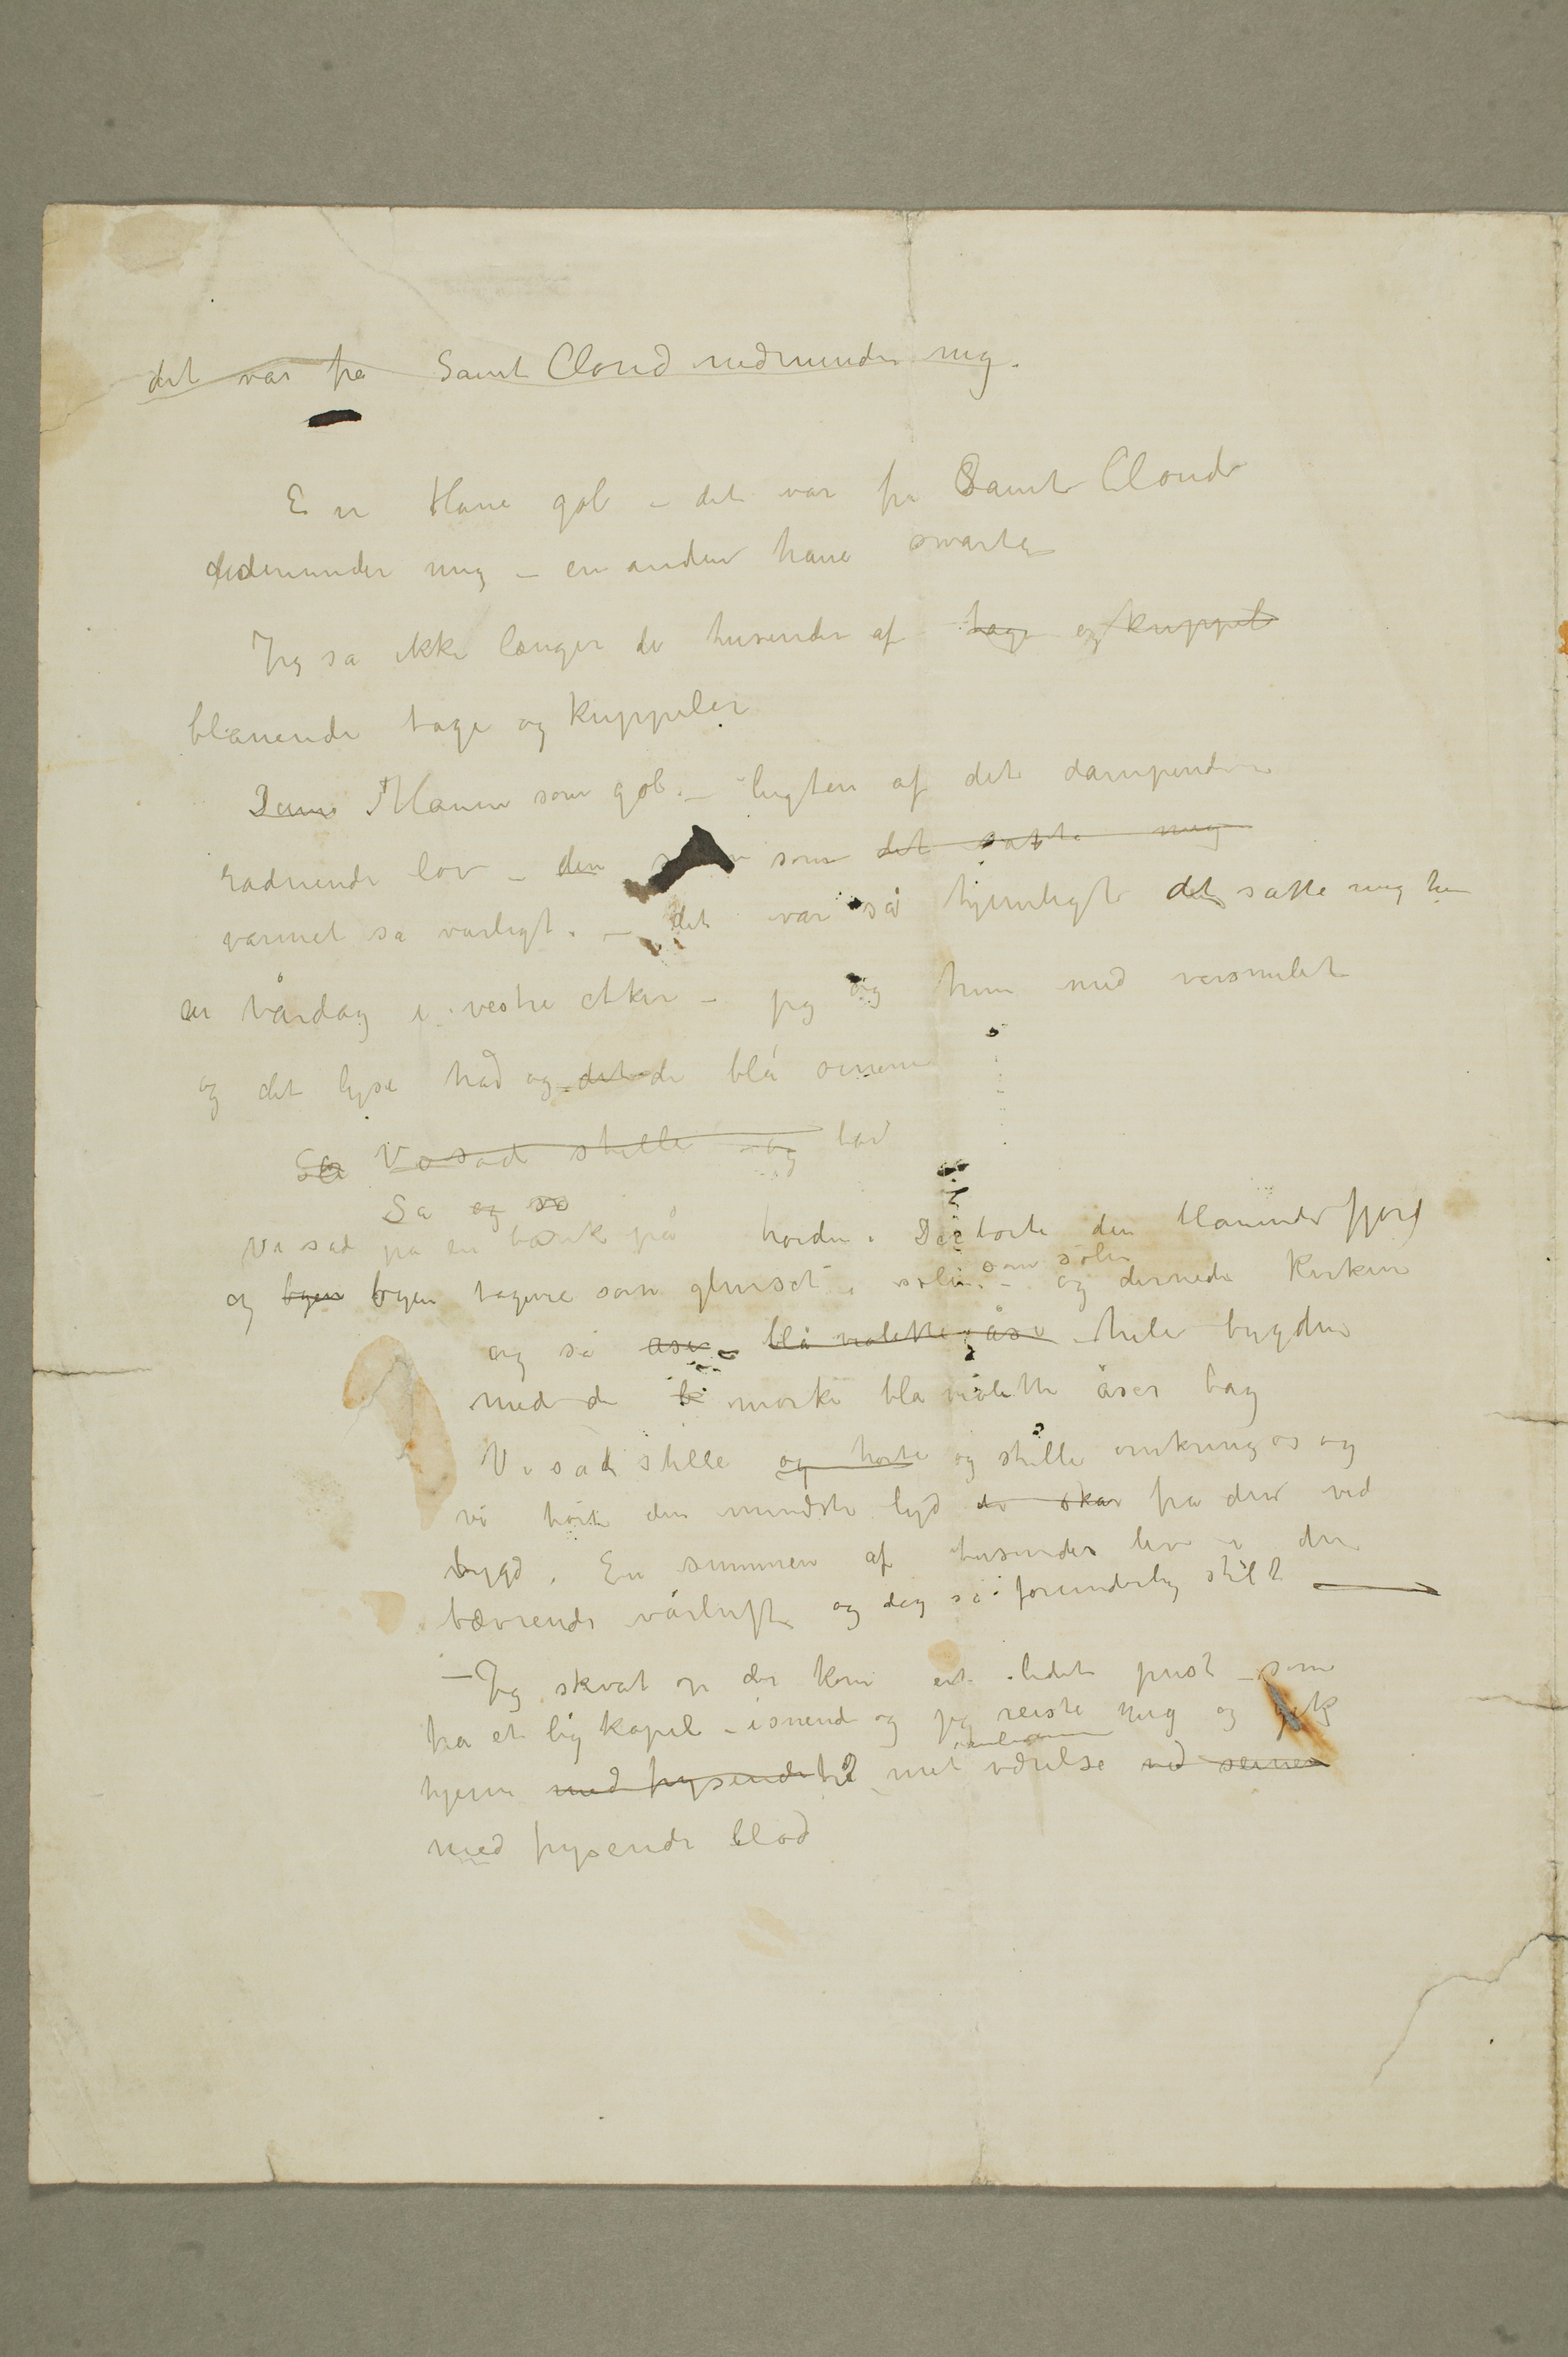 det var fra Saint Cloud nedenunder mig.
En Hane gol – det var fra Saint Cloud
dedenunder mig – en anden hane svarte
Jeg sa ikke længer de tusender af tage og kuppel
blanende tage og kuppeler
Hanen som gol. – lugten af det dampende
radnende løv – den som det satte mig
varmet sa varligt. – det var så hjemligt det satte mig hen
en vårdag i vestre Aker – jeg og hun med
og det lyse håd og det de blå
Vi sad stille og
Sa og så
Vi sad på en bænk på høiden. Der borte den blanende fjord
og byen byen tagene som glinset i solen. – og dernede Kirken
som solen
og så åser blå violette åser hele bygden
med de b mørke bla violette åser bag
Vi sad stille og hørte og stille omkring os og
vi hørte den mindste lyd fra den vid
bygd. En summen af tusinder liv i den
bævrende vårluft og dog så forunderlig stille
– Jeg skvat op der kom et lidet pust – som
fra et lig kapel – isnende og jeg reiste mig og gik
hjem med frysende til mit værelse ved seinen
med frysende blod